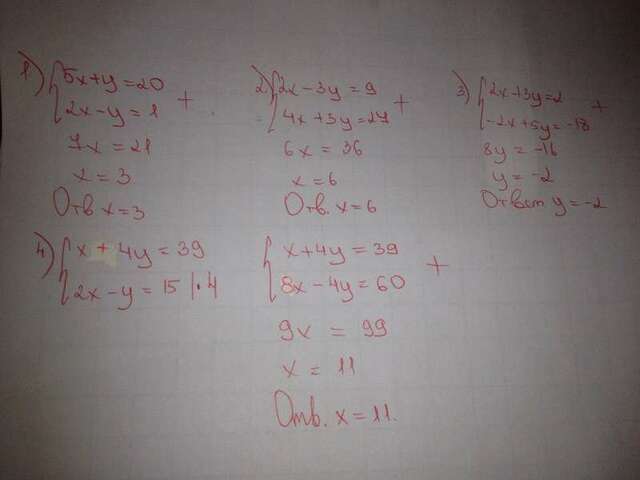 1) 5x+y=20
2x-y=1 +
7x=21
x=3
Отв x=3
2) 2x-3y=9
4x+3y=27 +
6x=36
x=6
Отв. x=6
3) 2x+3y=2 +
-2x+5y=-18
8y=-16
y=-2
Ответ y=-2
4) x+4y=39
2x-y=15 |·4
x+4y=39
8x-4y=60 +
9x=99
x=11
Отв. x=11.